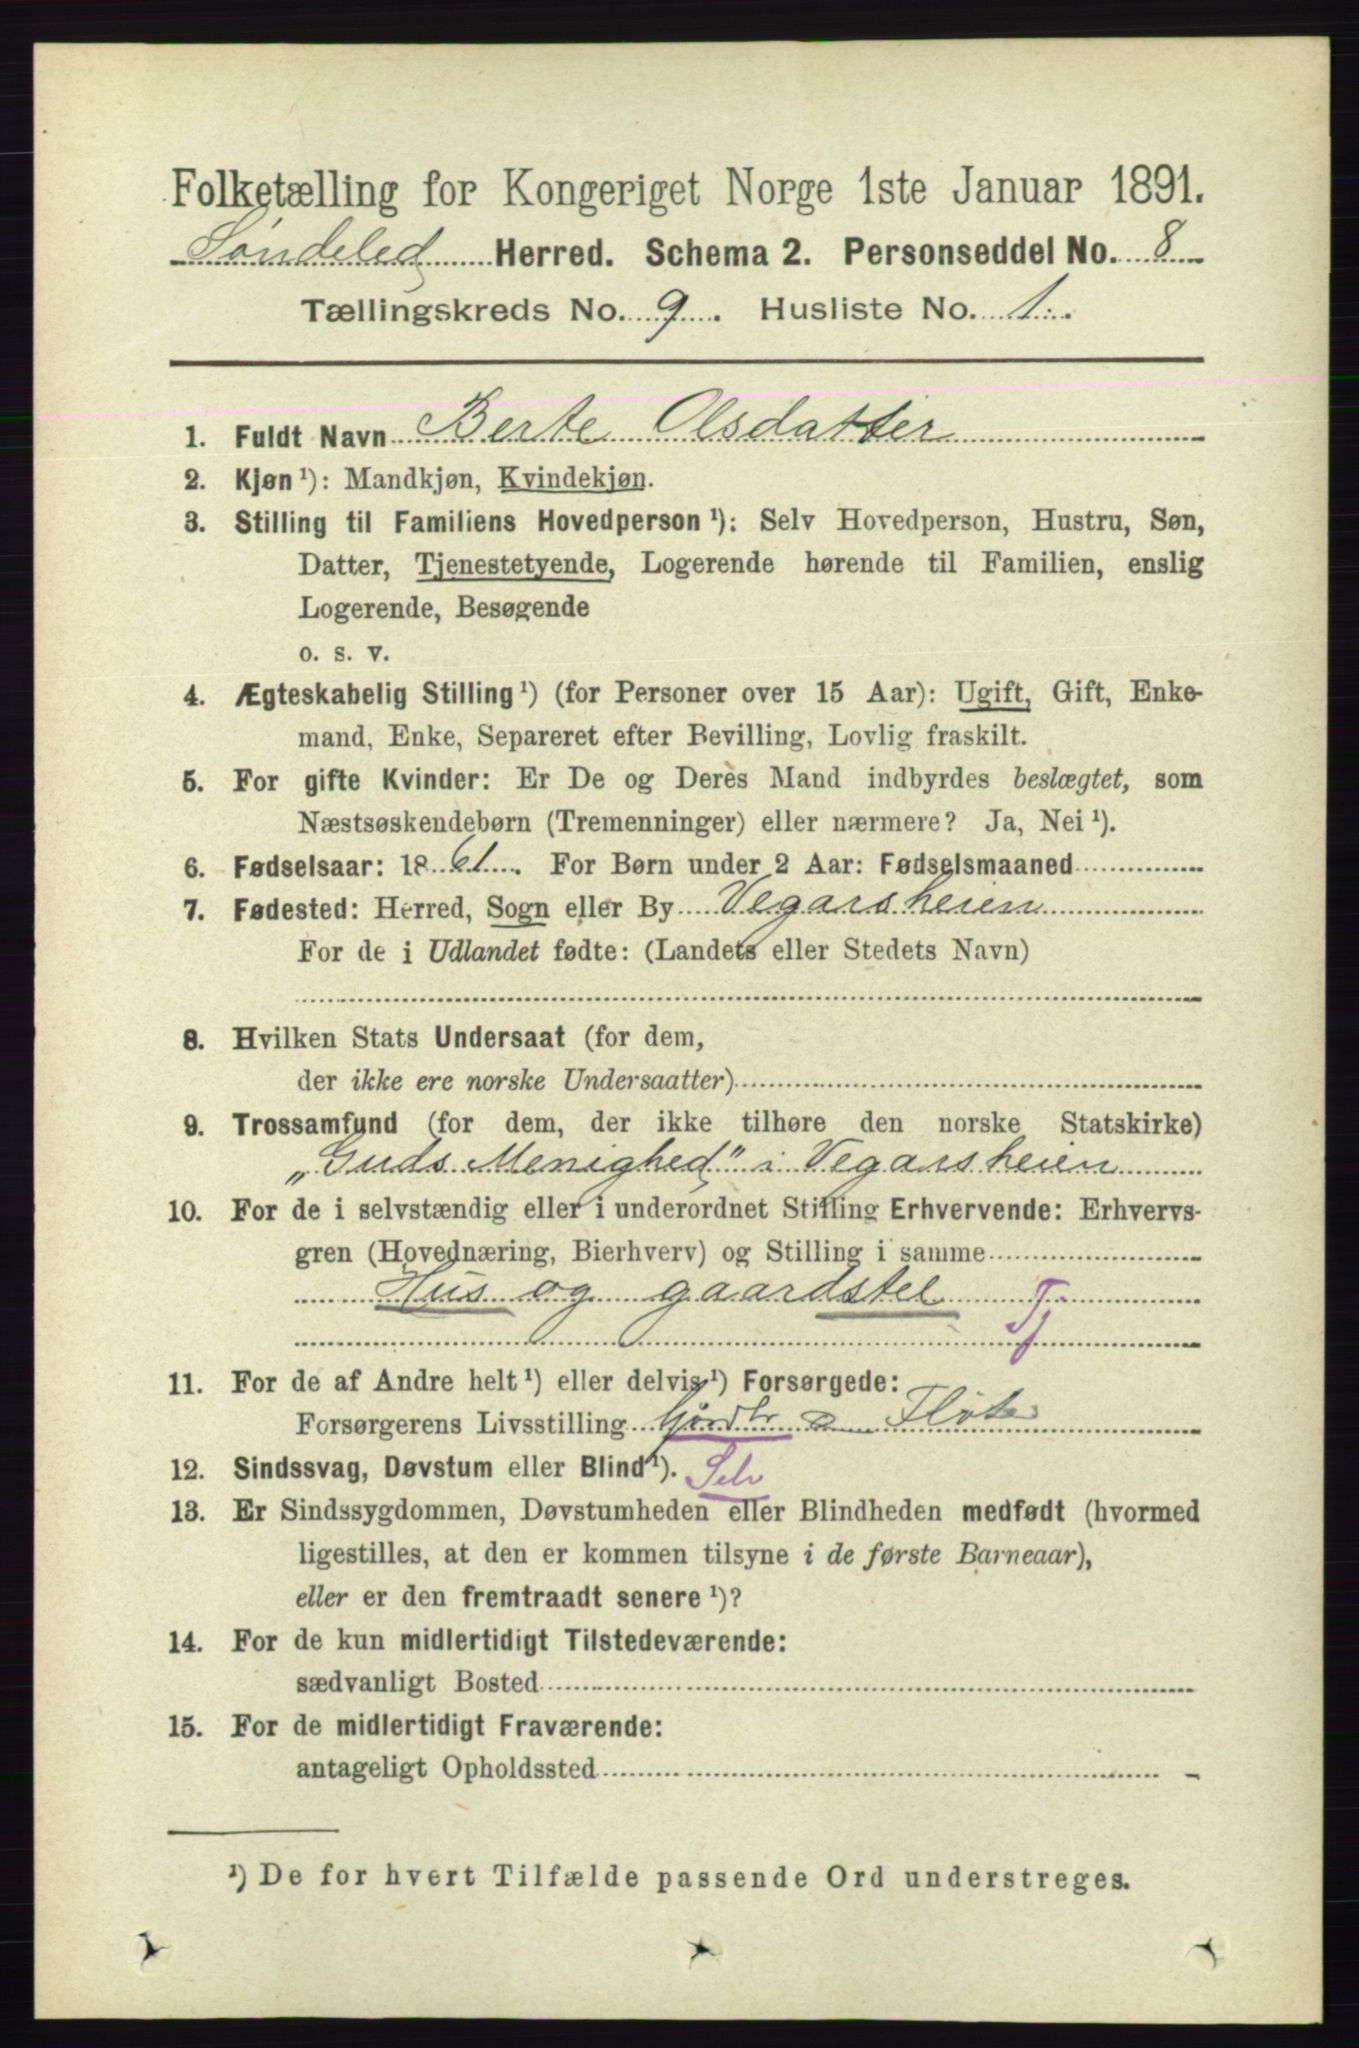 Folketælling for Kongeriget Norge 1ste Januar 1891.
Søndeled Herred. Schema 2. Personseddel No. 8
Tællingskreds No. 9. Husliste No. 1.
1. Fuldt Navn Berte Olsdatter
2. Kjøn ¹): Mandkjøn, Kvindekjøn.
3. Stilling til Familiens Hovedperson ¹): Selv Hovedperson, Hustru, Søn,
Datter, Tjenestetyende, Logerende hørende til Familien, enslig
Logerende, Besøgende
o. s. v.
4. Ægteskabelig Stilling ¹) (for Personer over 15 Aar): Ugift, Gift, Enke-
mand, Enke, Separeret efter Bevilling, Lovlig fraskilt.
5. For gifte Kvinder: Er De og Deres Mand indbyrdes beslægtet, som
Næstsøskendebørn (Tremenninger) eller nærmere? Ja, Nei ¹).
6. Fødselsaar: 1861. For Børn under 2 Aar: Fødselsmaaned
7. Fødested: Herred, Sogn eller By Vegarsheien
For de i Udlandet fødte: (Landets eller Stedets Navn)
8. Hvilken Stats Undersaat (for dem,
der ikke ere norske Undersaatter)
9. Trossamfund (for dem, der ikke tilhøre den norske Statskirke)
„Guds Menighed" i Vegarsheien
10. For de i selvstændig eller i underordnet Stilling Erhvervende: Erhvervs-
gren (Hovednæring, Bierhverv) og Stilling i samme
Hus og gaardstel Tj
11. For de af Andre helt ¹) eller delvis ¹) Forsørgede:
Forsørgerens Livsstilling Gårdbr Fløter
12. Sindssvag, Døvstum eller Blind ¹). Selv
13. Er Sindssygdommen, Døvstumheden eller Blindheden medfødt (hvormed
ligestilles, at den er kommen tilsyne i de første Barneaar),
eller er den fremtraadt senere ¹)?
14. For de kun midlertidigt Tilstedeværende:
sædvanligt Bosted
15. For de midlertidigt Fraværende:
antageligt Opholdssted
¹) De for hvert Tilfælde passende Ord understreges.